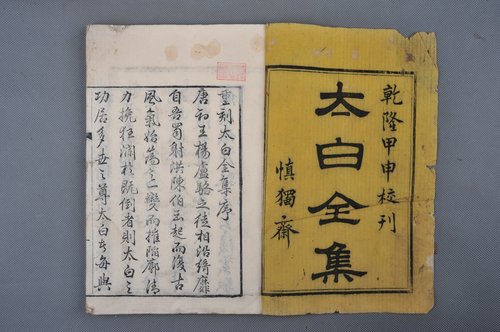 乾隆甲申校刊
太白全集
慎獨齋
重刻太白全集序
唐初王楊盧駱之徒相沿綺靡
自吾蜀射洪陳伯玉起而復古
風氣始為之一變而摧陷廓清
力挽狂瀾於既倒者則太白之
功居多世之尊太白者每與